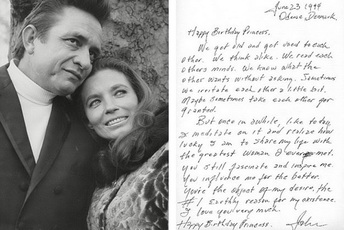 June 23 1994
Odense Denmark
Happy Birthday Princess,
We get old and get used to each
other. We think alike. We read each
others minds. We know what the
other wants without asking. Sometimes
we irritate each other a little bit.
Maybe sometimes take each other for
granted.
But once in awhile, like today,
I meditate on it and realize how
lucky I am to share my life with
the greatest woman I ever met.
You still fascinate and inspire me.
You influence me for the better.
You're the object of my desire, the
#1 Earthly reason for my existence.
I love you very much.
Happy Birthday Princess.
John